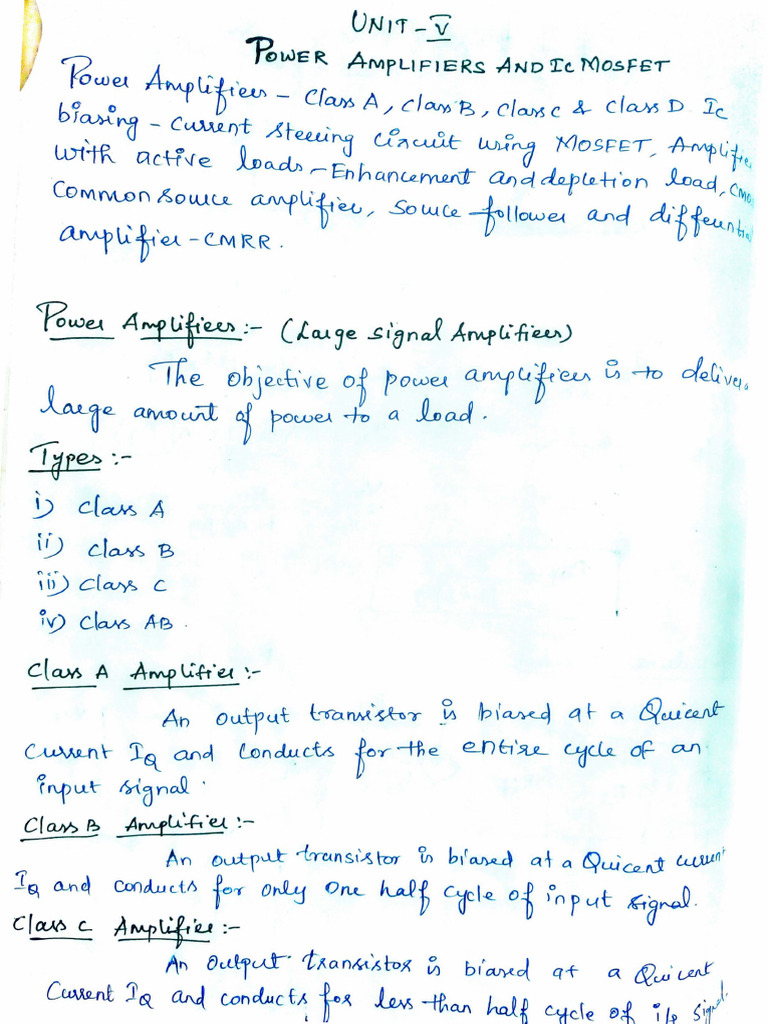 UNIT-V
POWER AMPLIFIERS AND IC MOSFET
Power Amplifiers - Class A, Class B, Class C & Class D Ic
biasing - Current steering circuit using MOSFET, Amplifie
with active loads, - Enhancement and depletion load, CMO
Common source amplifier, source follower and differentia
amplifier - CMRR.
Power Amplifiers:- (Large signal Amplifiers)
The objective of power amplifiers is to deliver
large amount of power to a load.
Types:-
i) Class A
ii) Class B
iii) Class C
iv) Class AB.
Class A Amplifier:-
An output transistor is biased at a Quicent
Current IQ and conducts for the entire cycle of an
input signal.
Class B Amplifier:-
An output transistor is biased at a Quicent current
IQ and conducts for only one half cycle of input signal.
Class C Amplifier:-
An output transistor is biased at a Quicent
Current IQ and conducts for less than half cycle of i/p signal.